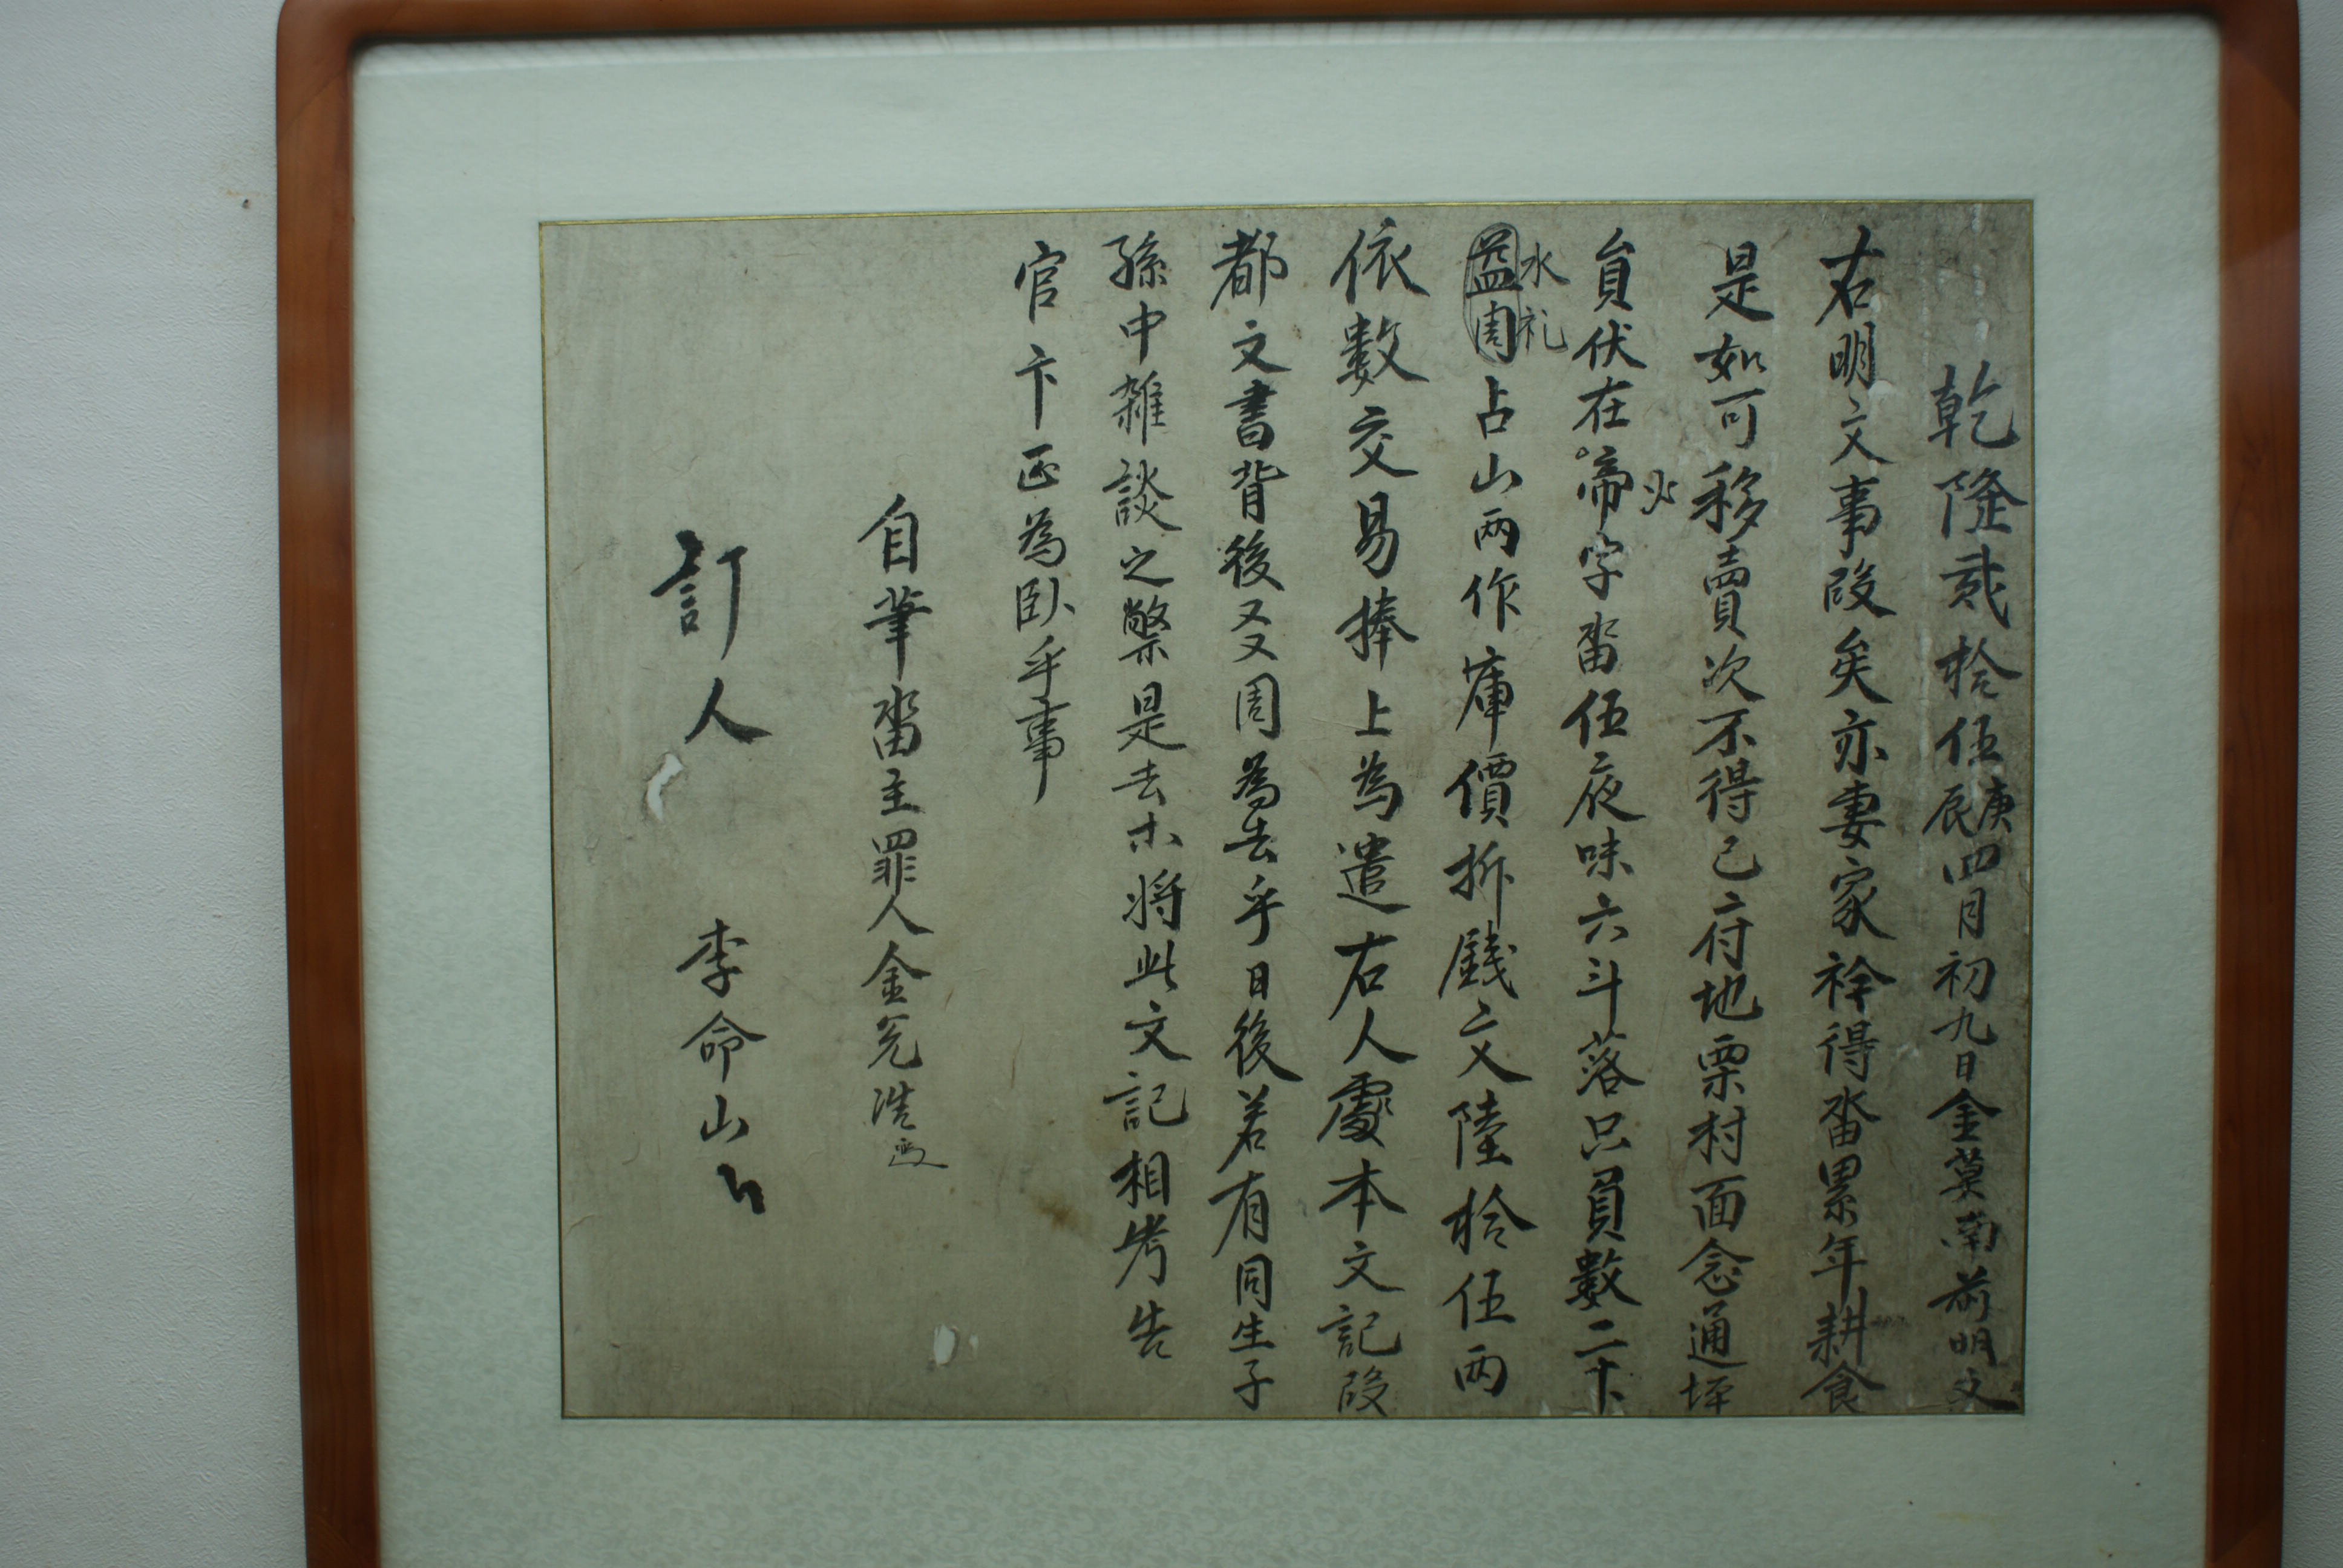 乾隆貳拾伍庚辰四月初九日金莫南前明文
右明文事段矣亦妻家衿得畓累年耕食
是如可移賣次不得已府地栗村面念通坪
員伏在啼字畓伍夜味六斗落只員數二卜
火
水礼
益周占山兩作庫價折錢文陸拾伍兩
依數交易捧上為遣右人處本文記段
都文書背後叉周為去乎日後若有同生子
孫中雑談之弊是去木将此文記相考告
官卞正為臥乎事
自筆畓主罪人金浩
訂人 李命山